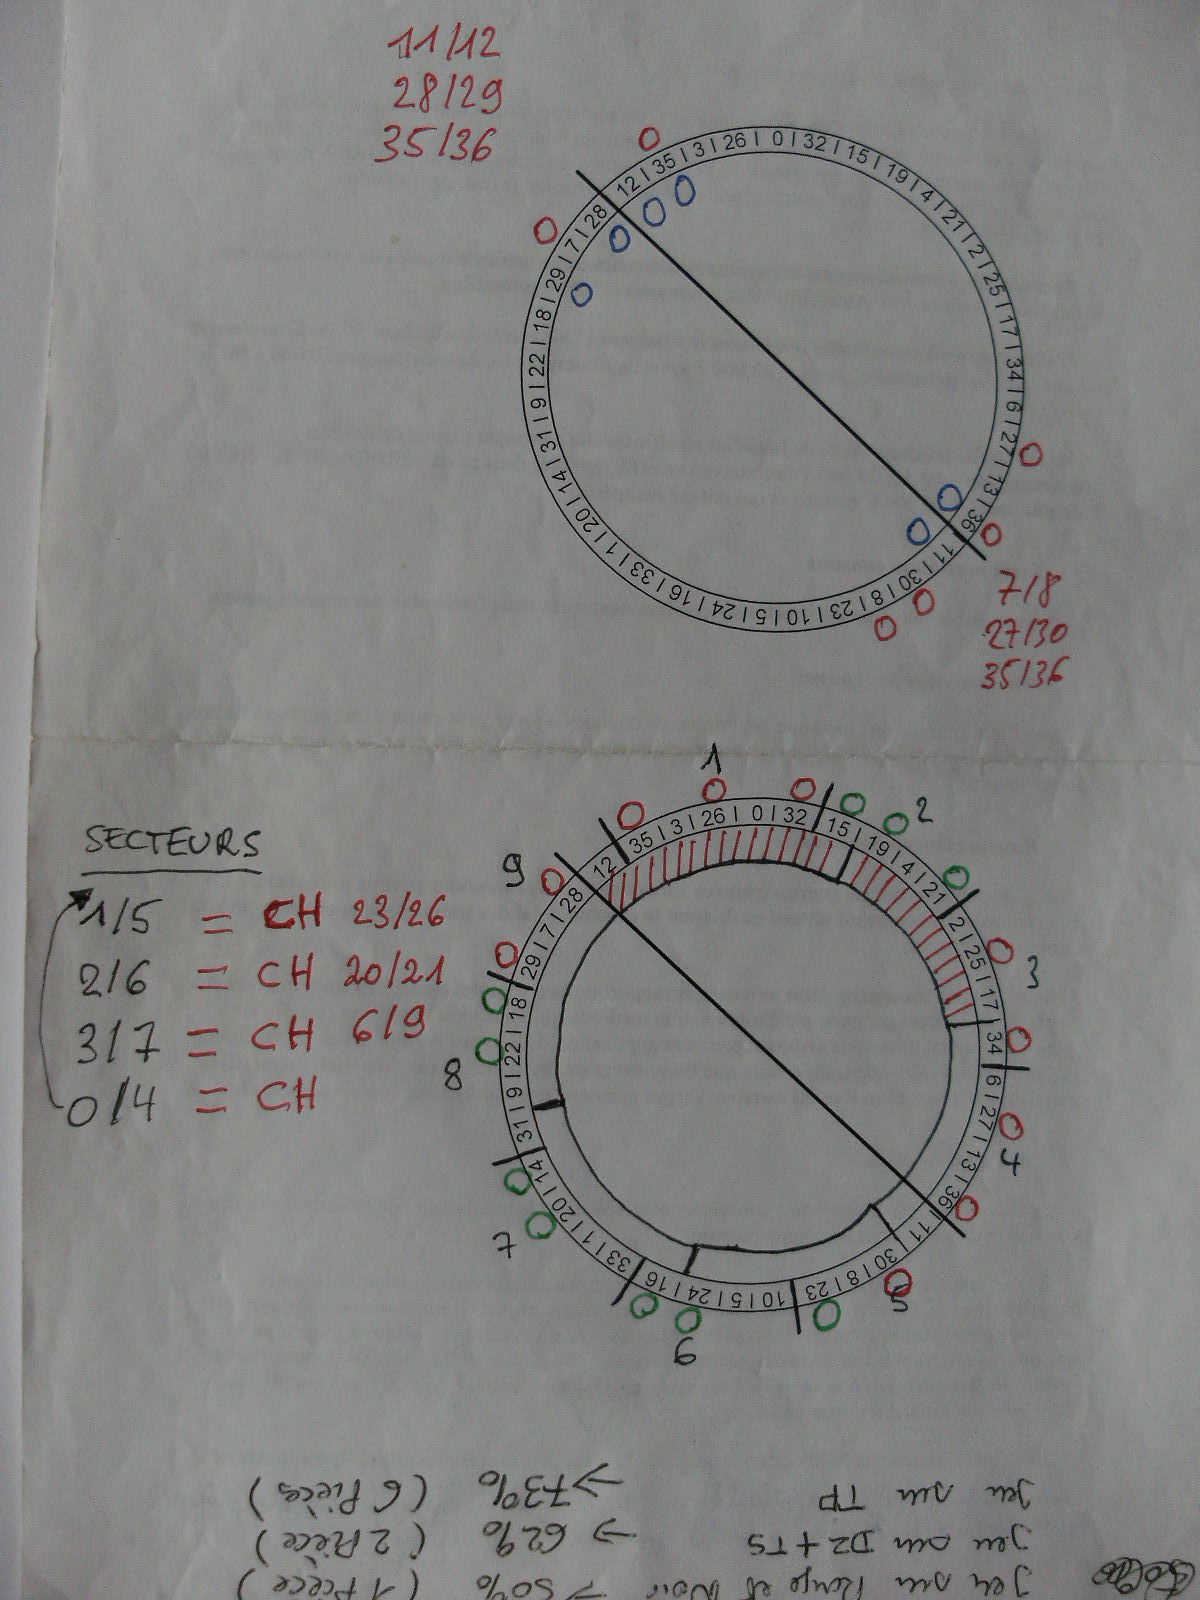 11/12
28/29
35/36
0 | 32 | 15 | 19 | 4 | 21 | 2 | 25 | 17 | 34 | 6 | 27 | 13 | 36 | 11 | 30 | 8 | 23 | 10 | 5 | 24 | 16 | 33 | 1 | 20 | 14 | 31 | 9 | 22 | 18 | 29 | 7 | 28 | 12 | 35 | 3 | 26 |
7/8
27/30
35/36
SECTEURS
1/5 = CH 23/26
2/6 = CH 20/21
3/7 = CH 6/9
0/4 = CH
1
2
3
4
5
6
7
8
9
0 | 32 | 15 | 19 | 4 | 21 | 2 | 25 | 17 | 34 | 6 | 27 | 13 | 36 | 11 | 30 | 8 | 23 | 10 | 5 | 24 | 16 | 33 | 1 | 20 | 14 | 31 | 9 | 22 | 18 | 29 | 7 | 28 | 12 | 35 | 3 | 26 |
Jeu sur Rouge et Noir → 50% (1 Pièce)
Jeu sur DZ + TS → 62% (2 Pièce)
Jeu sur TP → 73% (6 Pièces)